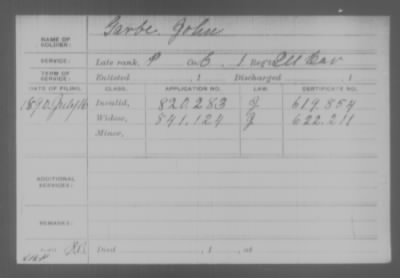 NAME OF SOLDIER: Garbe, John
SERVICE: Late rank, P Co. C, 1 Reg't Ill Cav
TERM OF SERVICE: Enlisted , 1 Discharged , 1
DATE OF FILING. CLASS. APPLICATION NO. LAW. CERTIFICATE NO.
1890 July 16 Invalid, 820.283 J 619.854
Widow, 841.124 J 622.211
Minor,
ADDITIONAL SERVICES:
REMARKS:
Died , 1 , at